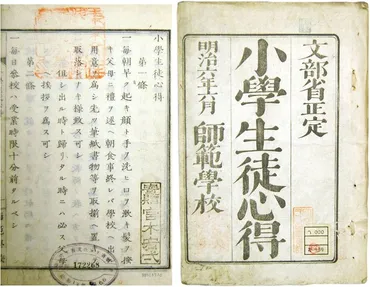 文部省正定
小學生徒心得
明治六年六月 師範學校
小學生徒心得
第一條
一毎朝早ク起キ顔ト手ヲ洗ヒ口ヲ漱キ髮ヲ按
キ父母ニ禮ヲ述ヘ朝食事終レハ學校ヘ出ル
用意ヲ爲シ先ツ筆紙書物等ヲ取揃ヘ置キテ
取落シナキ樣致ス可シ
但シ出ル時ト歸リタル時ニハ必ス父母
ヘ挨拶ヲ爲ス可シ
第二條
一毎日參校ハ受業時限十分前タルベシ
172265